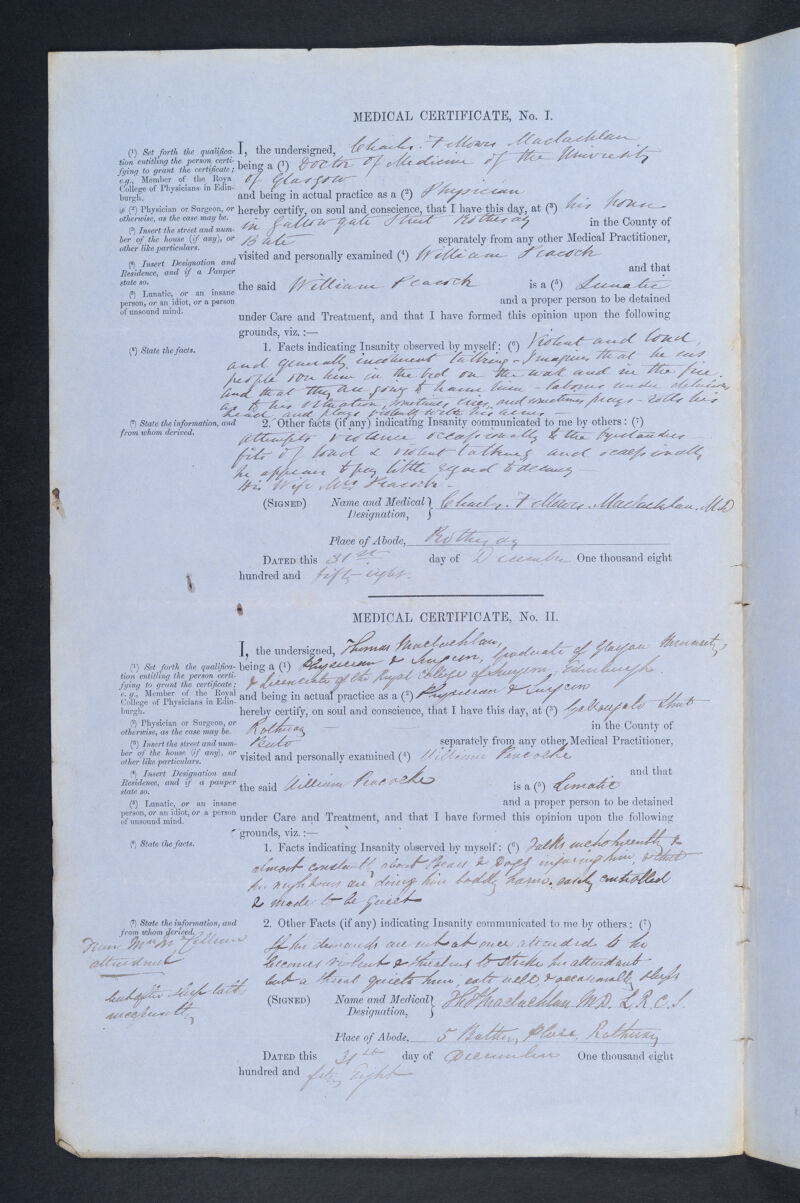 MEDICAL CERTIFICATE, No. I.
(¹) Set forth the qualifica-
tion entitling the person certi-
fying to grant the certificate;
e.g., Member of the Roya
College of Physicians in Edin-
burgh.
(²) Physician or Surgeon, or
otherwise, as the case may be.
(³) Insert the street and num-
ber of the house (if any), or
other like particulars.
(⁴) Insert Designation and
Residence, and if a Pauper
state so.
(⁵) Lunatic, or an insane
person, or an idiot, or a person
of unsound mind.
(⁶) State the facts.
(⁷) State the information, and
from whom derived.
I, the undersigned, Charles Fellowes Maclachlan
being a (¹) Doctor of Medicine of the University
of Glasgow
and being in actual practice as a (²) Physician
hereby certify, on soul and conscience, that I have this day, at (³) his house
in Gallowgate Street Rothesay in the County of
Bute separately from any other Medical Practitioner,
visited and personally examined (⁴) William Peacock
and that
the said William Peacock is a (⁵) Lunatic
and a proper person to be detained
under Care and Treatment, and that I have formed this opinion upon the following
grounds, viz.:—
1. Facts indicating Insanity observed by myself: (⁶) Violent and loud,
and generally incoherent talking - Imagines that he sees
people over him in the bed on the wall and in the fire
and that they are going to harm him - labours under delusions
as to his situation, sometimes cries and sometimes prays - rolls his
head and plays violently with his arms -
2. Other facts (if any) indicating Insanity communicated to me by others: (⁷)
attempts violence occasionally to the bystanders -
fits of loud & violent talking and occasionally
he appears to pay little regard to decency -
His Wife Mrs Peacock -
(SIGNED) Name and Medical Designation, Charles Fellowes Maclachlan. M.D
Place of Abode, Rothesay
DATED this 31st day of December One thousand eight
hundred and fifty eight.
MEDICAL CERTIFICATE, No. II.
(¹) Set forth the qualifica-
tion entitling the person certi-
fying to grant the certificate;
e. g., Member of the Royal
College of Physicians in Edin-
burgh.
(²) Physician or Surgeon, or
otherwise, as the case may be.
(³) Insert the street and num-
ber of the house (if any), or
other like particulars.
(⁴) Insert Designation and
Residence, and if a pauper
state so.
(⁵) Lunatic, or an insane
person, or an idiot, or a person
of unsound mind.
(⁶) State the facts.
(⁷) State the information, and
from whom derived.
From Mrs McCallum
attendant
but after sleep talks
incessantly
I, the undersigned, Thomas Maclachlan,
being a (¹) Physician & Surgeon, Graduate of Glasgow University
& Licenciate of the Royal College of Surgeons, Edinburgh
and being in actual practice as a (²) Physician & Surgeon
hereby certify, on soul and conscience, that I have this day, at (³) Gallowgate Street
Rothesay in the County of
Bute separately from any other Medical Practitioner,
visited and personally examined (⁴) William Peacocke
and that
the said William Peacocke is a (⁵) Lunatic
and a proper person to be detained
under Care and Treatment, and that I have formed this opinion upon the following
grounds, viz.:—
1. Facts indicating Insanity observed by myself: (⁶) Talks incoherently &
almost constantly about Bears & Dogs injuring him, & that
his neighbours are doing him bodily harm. easily controlled
& made to be quiet
2. Other Facts (if any) indicating Insanity communicated to me by others: (⁷)
If his demands are not at once attended to he
becomes violent & threatens to strike his attendant
but a threat quiets him, eats well & occasionally sleeps
(SIGNED) Name and Medical Designation, Th Maclachlan M.D. L.R.C.S.
Place of Abode, 5 Battery Place, Rothesay
DATED this 31st day of December One thousand eight
hundred and fifty Eight